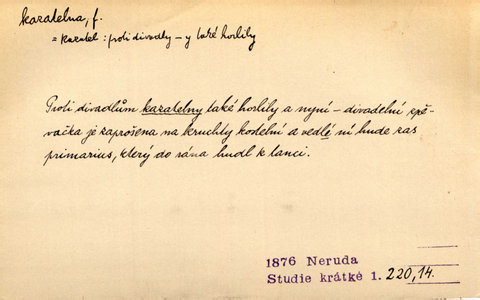 kazatelna, f.
= kazatel: proti divadlům – y také horlily
Proti divadlům kazatelny také horlily a nyní – divadelní zpě-
vačka je zaprošena na kruchty kostelní a vedlé ní hude zas
primarius, který do rána hudl k tanci.
1876 Neruda
Studie krátké 1. 220,14.